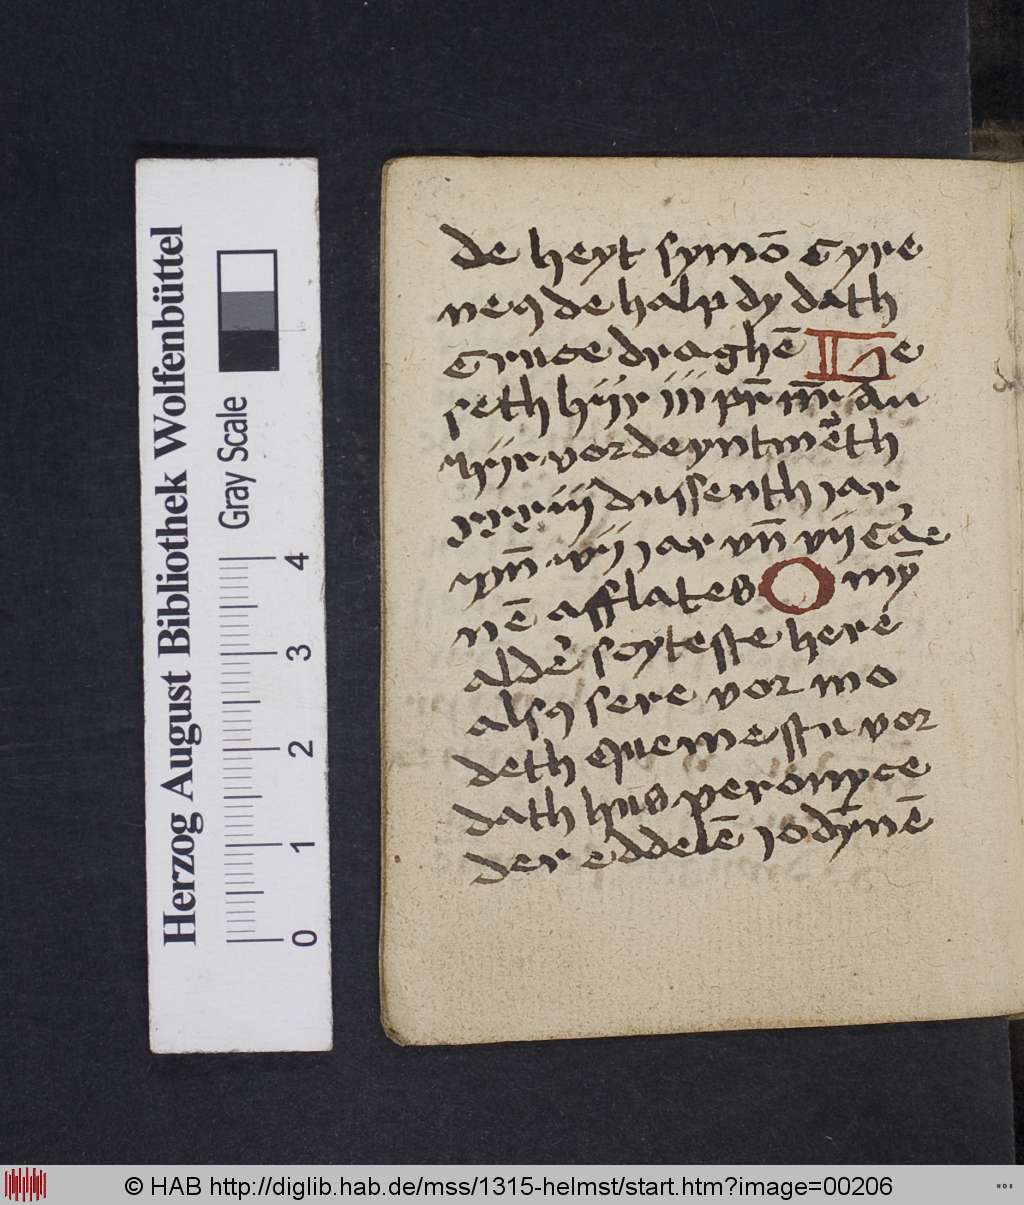 de heyt symō Cyre
neꝯ de halp dy dath
Cruce draghē Le
seth hyr iii pr̄ nr̄ du
hyr vordeynt mēth
xxxiij dussenth iar
vn̄ vij iar vn̄ vij
nē afflates O mȳ
alde soyteste here
alsꝯ sere vor mo
deth queme stu vor
dath hus veronyce
der eddelē iodȳnē
Herzog August Bibliothek Wolfenbüttel
Gray Scale
0 1 2 3 4
© HAB http://diglib.hab.de/mss/1315-helmst/start.htm?image=00206